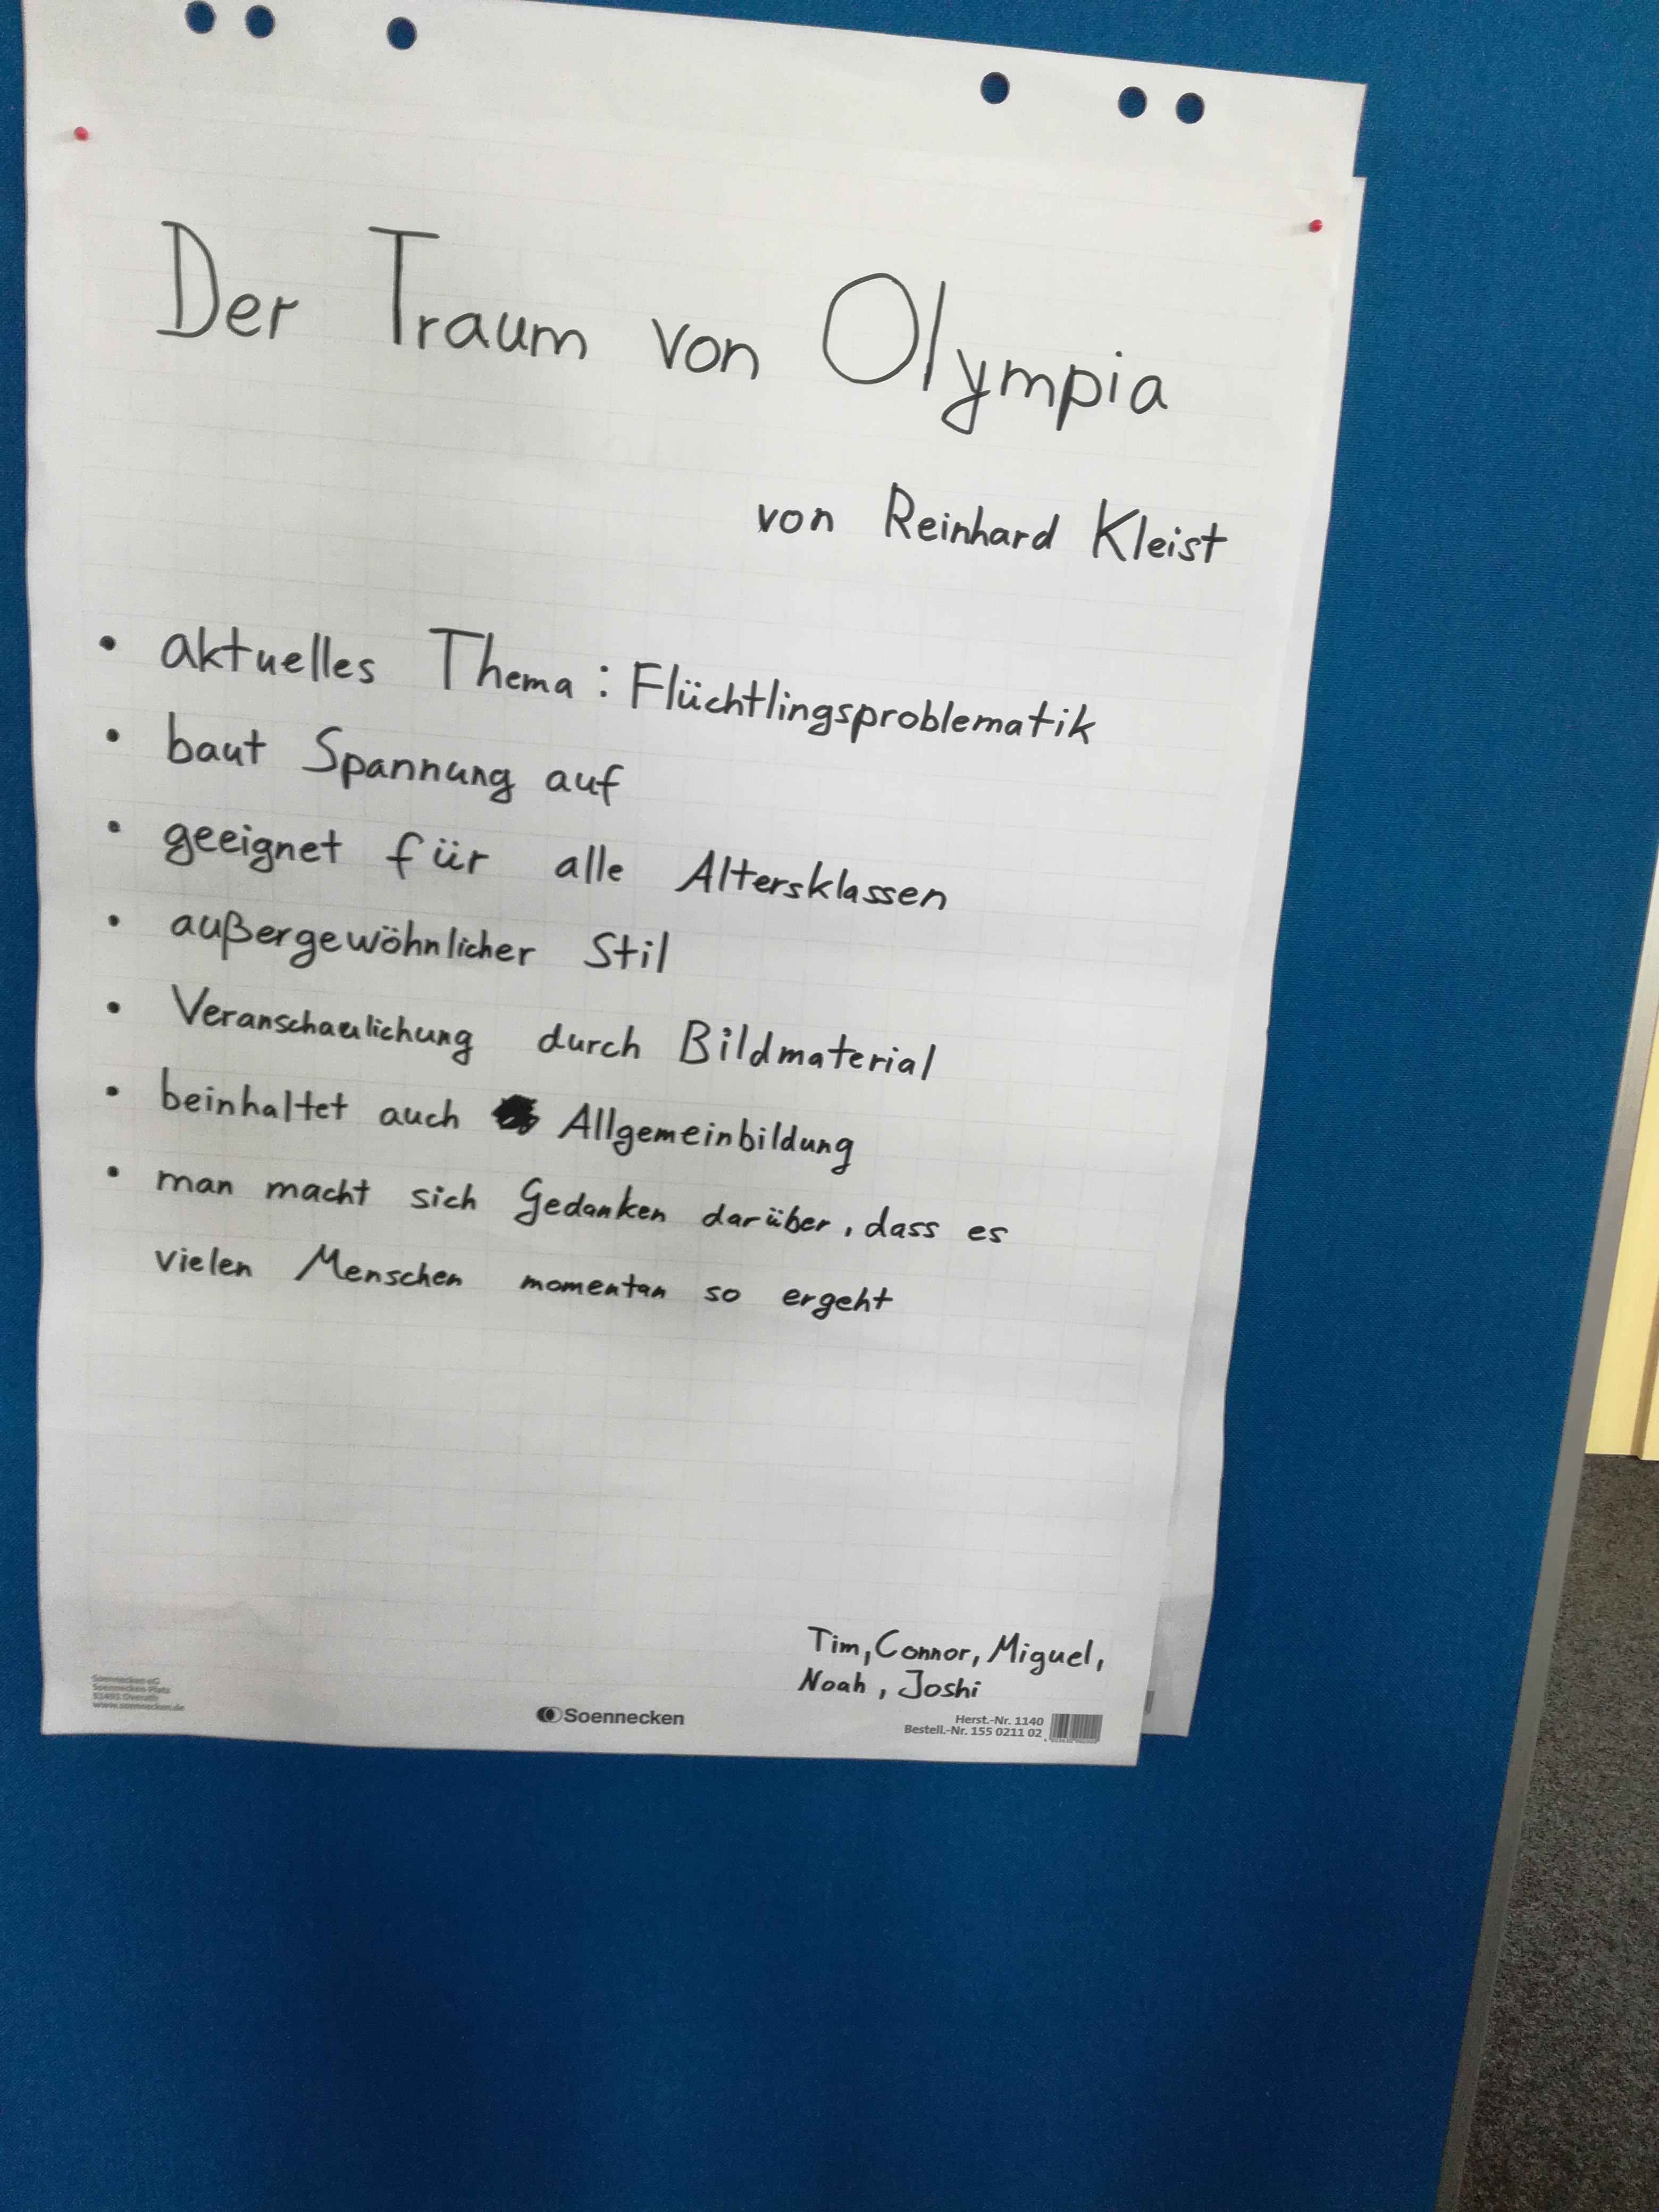 Der Traum von Olympia
von Reinhard Kleist
• aktuelles Thema : Flüchtlingsproblematik
• baut Spannung auf
• geeignet für alle Altersklassen
• außergewöhnlicher Stil
• Veranschaulichung durch Bildmaterial
• beinhaltet auch Allgemeinbildung
• man macht sich Gedanken darüber, dass es
vielen Menschen momentan so ergeht
Tim, Connor, Miguel,
Noah, Joshi
Soennecken eG
Soennecken-Platz
51491 Overath
www.soennecken.de
Soennecken
Herst.-Nr. 1140
Bestell.-Nr. 155 0211 02